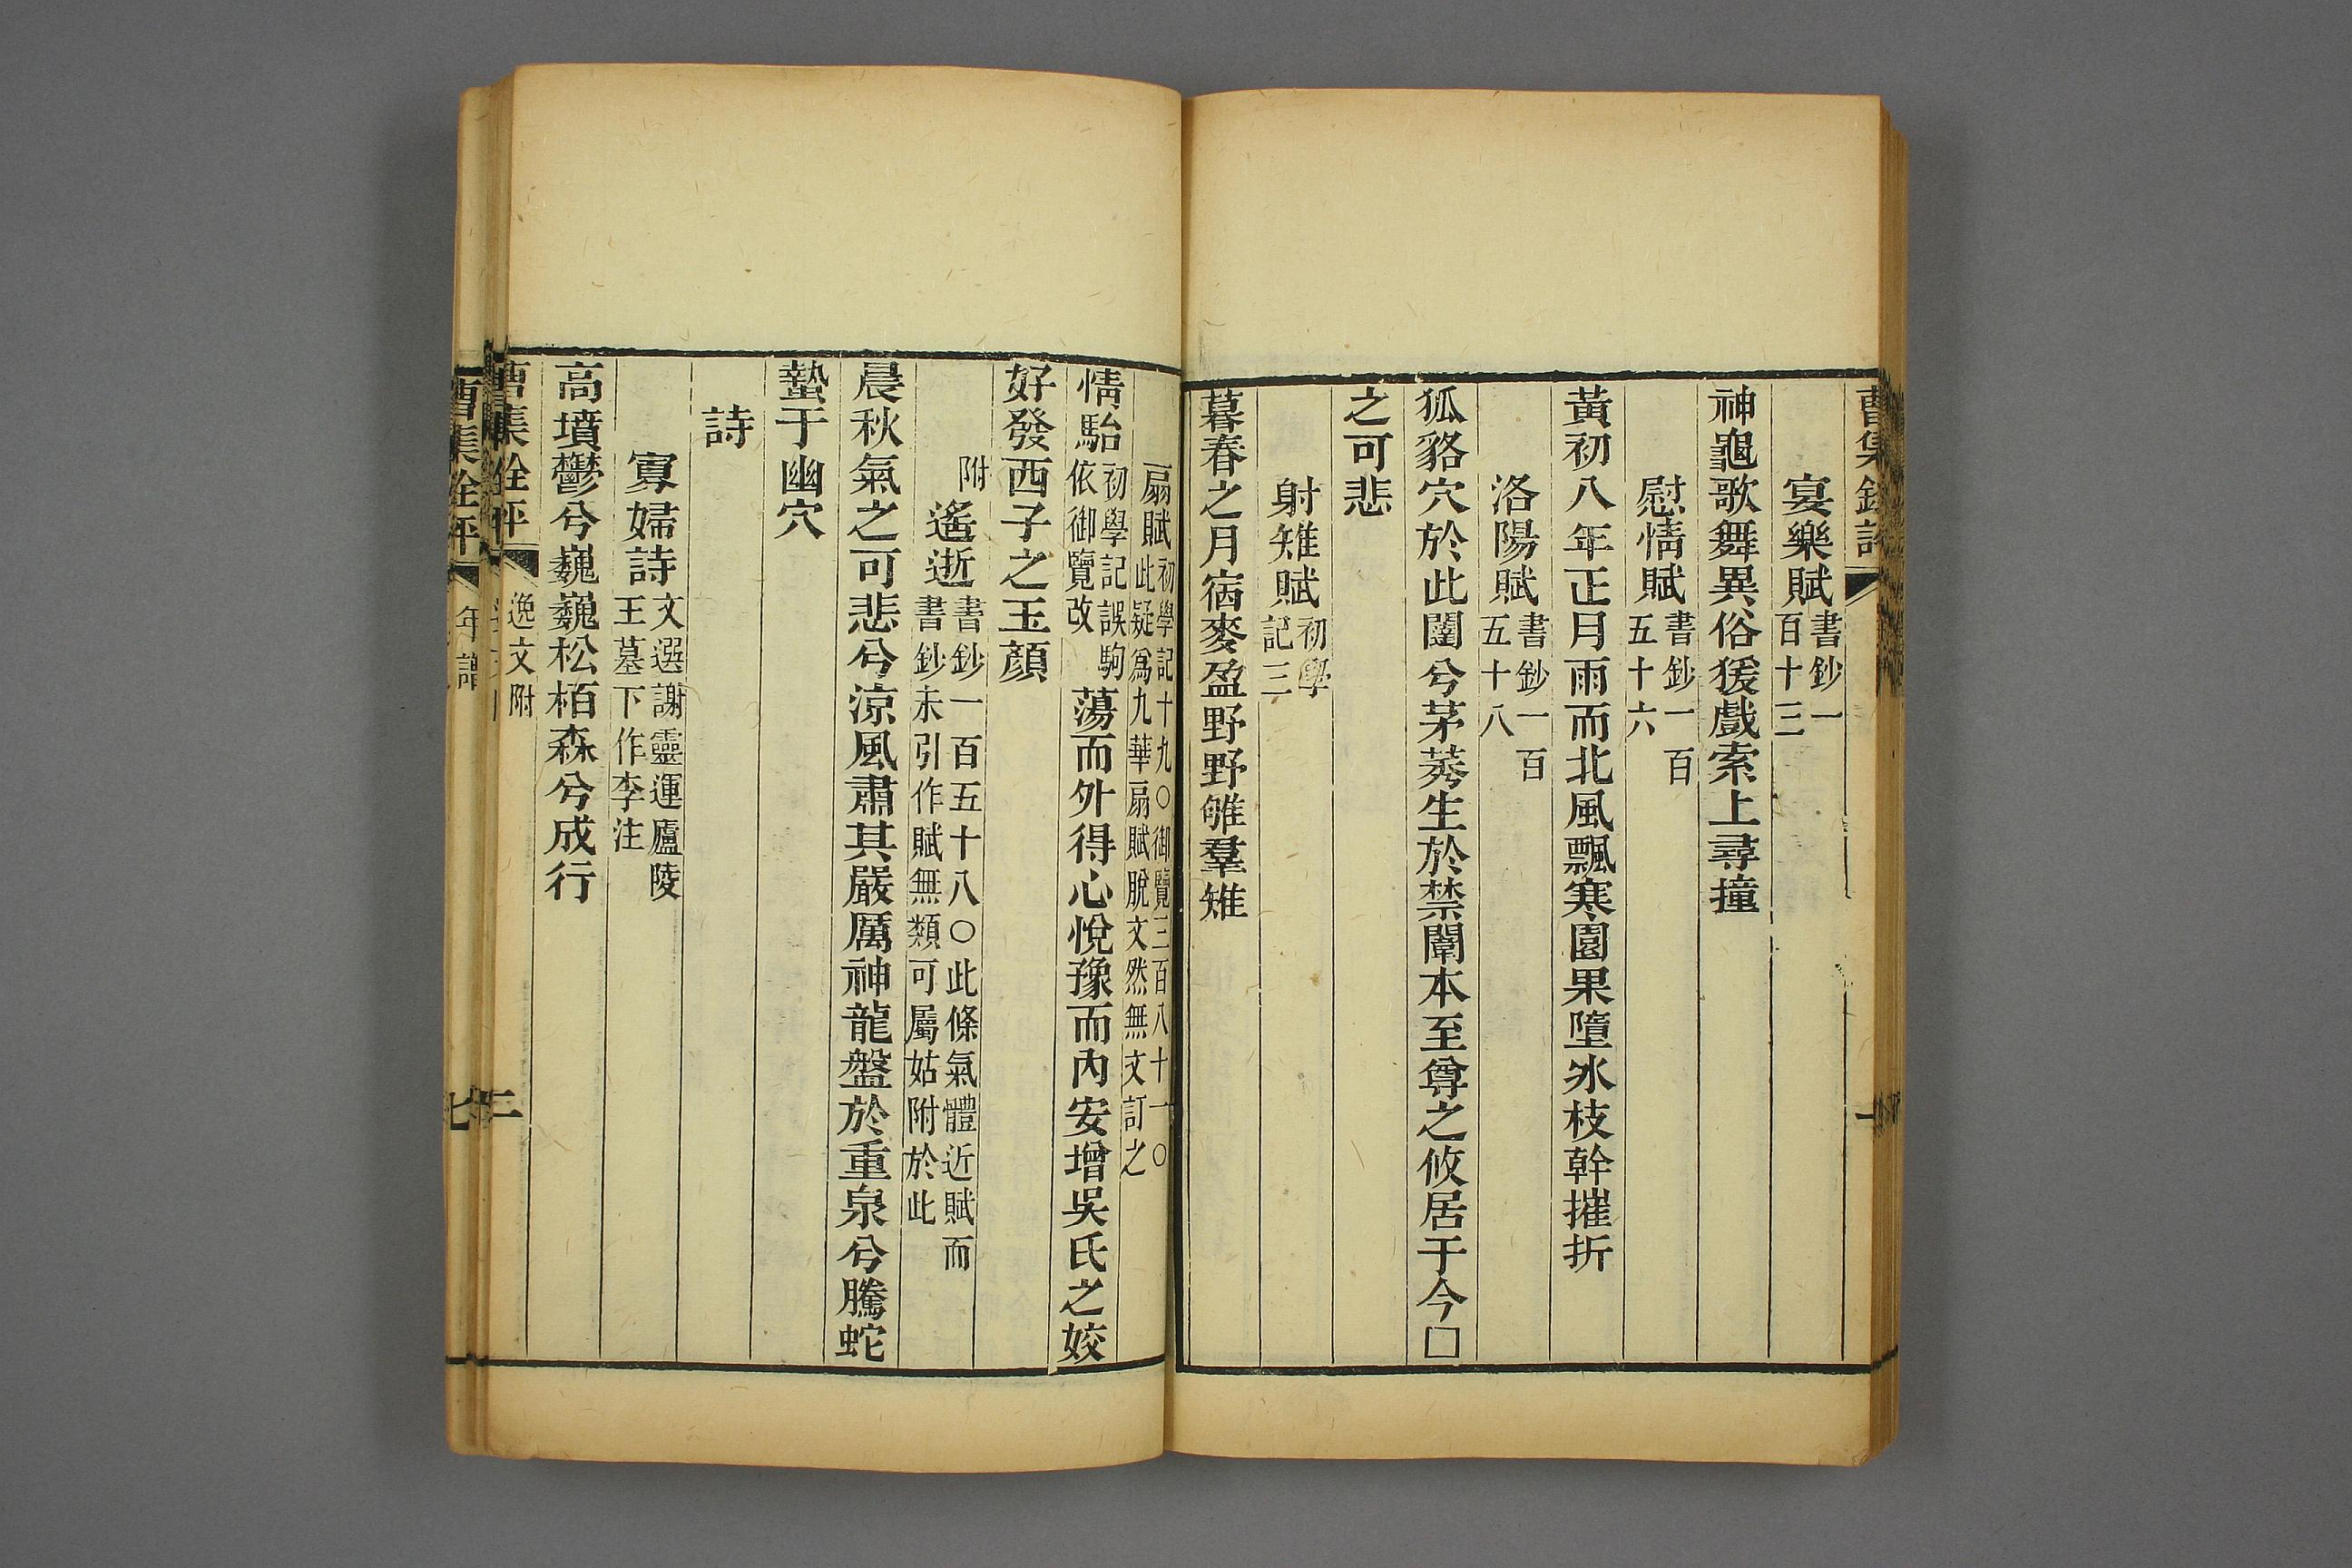 宴樂賦書鈔一百十三
神龜歌舞異俗猨戲索上尋撞
慰情賦書鈔一百五十六
黃初八年正月雨而北風飄寒園果墮冰枝幹摧折
洛陽賦書鈔一百五十八
狐貉穴於此闥兮茅莠生於禁闈本至尊之攸居于今□
之可悲
射雉賦初學記三
暮春之月宿麥盈野野雊羣雉
扇賦初學記十九○御覽三百八十一○此疑爲九華扇賦脫文然無文訂之
情駘初學記誤駒依御覽改蕩而外得心悅豫而內安增吳氏之姣
好發西子之玉顏
附遙逝書鈔一百五十八○此條氣體近賦而書鈔未引作賦無類可屬姑附於此
晨秋氣之可悲兮涼風肅其嚴厲神龍盤於重泉兮騰蛇
蟄于幽穴
詩
寡婦詩文選謝靈運廬陵王墓下作李注
高墳鬱兮巍巍松栢森兮成行
曹集銓評 逸文附 二
曹集銓評 年譜 七